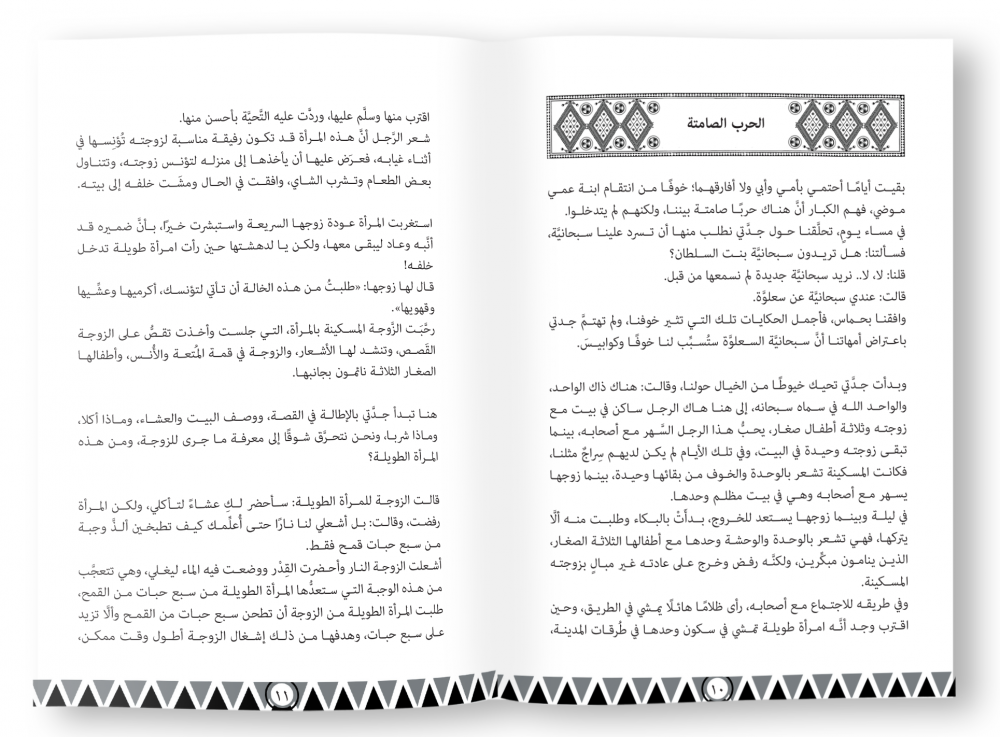 الحرب الصامتة
بقيت أيامًا أحتمي بأمي وأبي ولا أفارقهما؛ خوفًا من انتقام ابنة عمي
موضي، فهم الكبار أنَّ هناك حربًا صامتة بيننا، ولكنهم لم يتدخلوا.
في مساء يومٍ، تحلَّقنا حول جدَّتي نطلب منها أن تسرد علينا سبحانيَّة،
فسألتنا: هل تريدون سبحانيَّة بنت السلطان؟
قلنا: لا، لا.. نريد سبحانيَّة جديدة لم نسمعها من قبل.
قالت: عندي سبحانيَّة عن سعلوَّة.
وافقنا بحماس، فأجمل الحكايات تلك التي تثير خوفنا، ولم تهتمَّ جدتي
باعتراض أمهاتنا أنَّ سبحانيَّة السعلوَّة ستُسبِّب لنا خوفًا وكوابيسَ.
وبدأت جدَّتي تحيك خيوطًا من الخيال حولنا، وقالت: هناك ذاك الواحد،
والواحد الله في سماه سبحانه، إلى هنا هاك الرجل ساكن في بيت مع
زوجته وثلاثة أطفال صغار، يحبُّ هذا الرجل السَّهر مع أصحابه، بينما
تبقى زوجته وحيدة في البيت، وفي تلك الأيام لم يكن لديهم سِراجٌ مثلنا،
فكانت المسكينة تشعر بالوحدة والخوف من بقائها وحيدة، بينما زوجها
يسهر مع أصحابه وهي في بيت مظلم وحدها.
في ليلة وبينما زوجها يستعد للخروج، بدأتْ بالبكاء وطلبت منه ألَّا
يتركها، فهي تشعر بالوحدة والوحشة وحدها مع أطفالها الثلاثة الصغار،
الذين ينامون مبكِّرين، ولكنَّه رفض وخرج على عادته غير مبالٍ بزوجته
المسكينة.
وفي طريقه للاجتماع مع أصحابه، رأى ظلامًا هائلًا يمشي في الطريق، وحين
اقترب وجد أنَّه امرأة طويلة تمشي في سكون وحدها في طُرقات المدينة،
١٠
اقترب منها وسلَّم عليها، وردَّت عليه التَّحيَّة بأحسن منها.
شعر الرَّجل أنَّ هذه المرأة قد تكون رفيقة مناسبة لزوجته تُؤنِسها في
أثناء غيابه، فعرَض عليها أن يأخذها إلى منزله لتؤنس زوجته، وتتناول
بعض الطعام وتشرب الشاي، وافقت في الحال ومشَت خلفه إلى بيته.
استغربت المرأة عودة زوجها السريعة واستبشرت خيرًا، بأنَّ ضميره قد
أنَّبه وعاد ليبقى معها، ولكن يا لدهشتها حين رأت امرأة طويلة تدخل
خلفه!
قال لها زوجها: «طلبتُ من هذه الخالة أن تأتي لتؤنسك، أكرميها وعشَّيها
وقهويها».
رحَّبَت الزَّوجة المسكينة بالمرأة، التي جلست وأخذت تقصُّ على الزوجة
القَصص، وتنشد لها الأشعار، والزوجة في قمة المُتعة والأُنس، وأطفالها
الصغار الثلاثة نائمون بجانبها.
هنا تبدأ جدَّتي بالإطالة في القصة، ووصف البيت والعشاء، وماذا أكلا،
وماذا شربا، ونحن نتحرَّق شوقًا إلى معرفة ما جرى للزوجة، ومن هذه
المرأة الطويلة؟
قالت الزوجة للمرأة الطويلة: سأحضر لكِ عشاءً لتأكلي، ولكن المرأة
رفضت، وقالت: بل أشعلي لنا نارًا حتى أُعلِّمك كيف تطبخين ألذَّ وجبة
من سبع حبات قمح فقط.
أشعلت الزوجة النار وأحضرت القِدْر ووضعت فيه الماء ليغلي، وهي تتعجَّب
من هذه الوجبة التي ستعدُّها المرأة الطويلة من سبع حبات من القمح،
طلبت المرأة الطويلة من الزوجة أن تطحن سبع حبات من القمح وألَّا تزيد
على سبع حبات، وهدفها من ذلك إشغال الزوجة أطول وقت ممكن،
١١